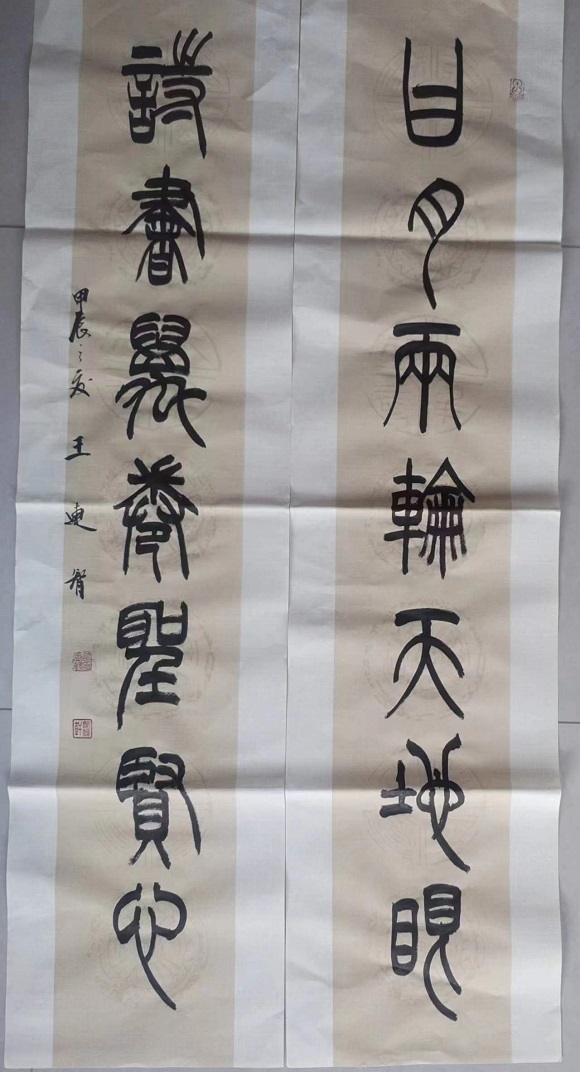 日月兩輪天地眼
詩書萬卷聖賢心
甲辰之夏 王連